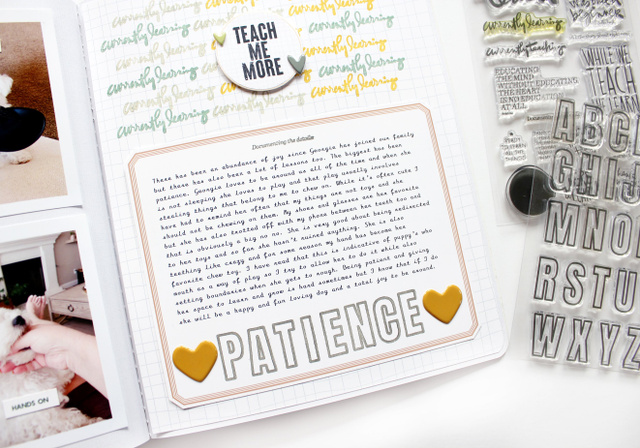 currently learning currently learning currently learning
currently learning currently learning
currently learning currently learning
currently learning currently learning currently learning
currently learning currently learning currently learning
TEACH
ME
MORE
Documenting the details
There has been an abundance of joy since Georgia has joined our family
but there has also been a lot of lessons too. The biggest has been
patience. Georgia loves to be around us all of the time and when she
is not sleeping she loves to play and that play usually involves
stealing things that belong to me to chew on. While it's often cute I
have had to remind her often that my things are not toys and she
should not be chewing on them. My shoes and glasses are her favorite
but she has also trotted off with my phone between her teeth too and
that is obviously a big no no. She is very good about being redirected
to her toys and so far she hasn't ruined anything. She is also
teething like crazy and for some reason my hand has become her
favorite chew toy. I have read that this is indicative of puppy's who
mouth as a way of play so I try to allow her to do it while also
setting boundaries when she gets to rough. Being patient and giving
her space to learn and grow is hard sometimes but I know that if I do
she will be a happy and fun loving dog and a total joy to be around.
PATIENCE
HANDS ON
currently learning
currently teaching
EDUCATING
THE MIND
WITHOUT EDUCATING
THE HEART
IS NO EDUCATION
AT ALL
WHILE WE
TEACH
LEARN
Documenting
ABCL
GHIJ
MNO
RSTU
WXYZ